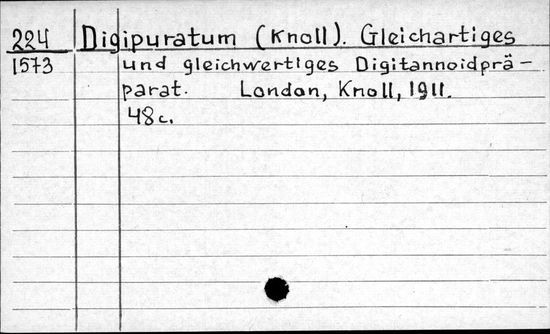 224 Digipuratum (Knoll). Gleichartiges
1573 und gleichwertiges Digitannoidprä-
parat. London, Knoll, 1911.
48c.